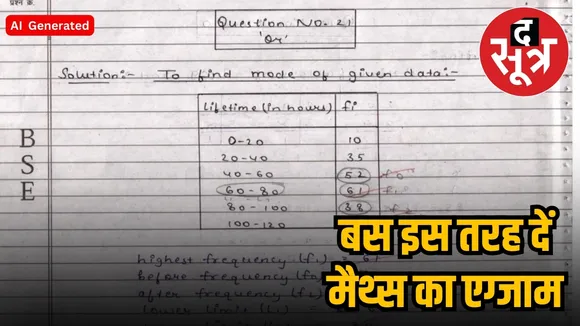 प्रश्न क्र.
AI Generated
Question No. 21
'Or'
द
सूत्र
Solution:- To find mode of given data:-
Lifetime (in hours) fi
0-20 10
20-40 35
40-60 52 f0
60-80 61 f1
80-100 38 f2
100-120
B
S
E
highest frequency (f1) = 61
before frequency (f0)
after frequency (f2)
lower limit (l)
बस इस तरह दें
मैथ्स का एग्जाम